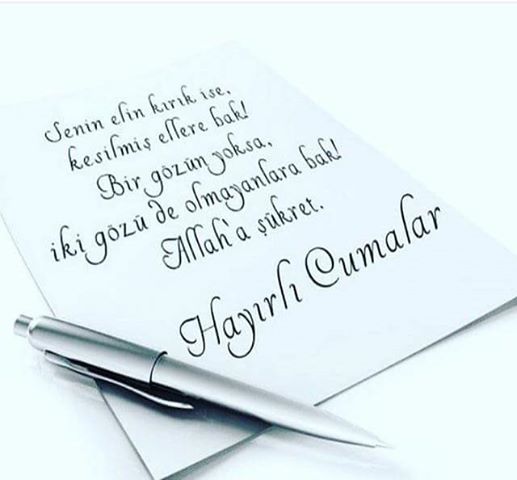 Senin elin kırık ise,
kesilmiş ellere bak!
Bir gözün yoksa,
iki gözü de olmayanlara bak!
Allah'a şükret.
Hayırlı Cumalar